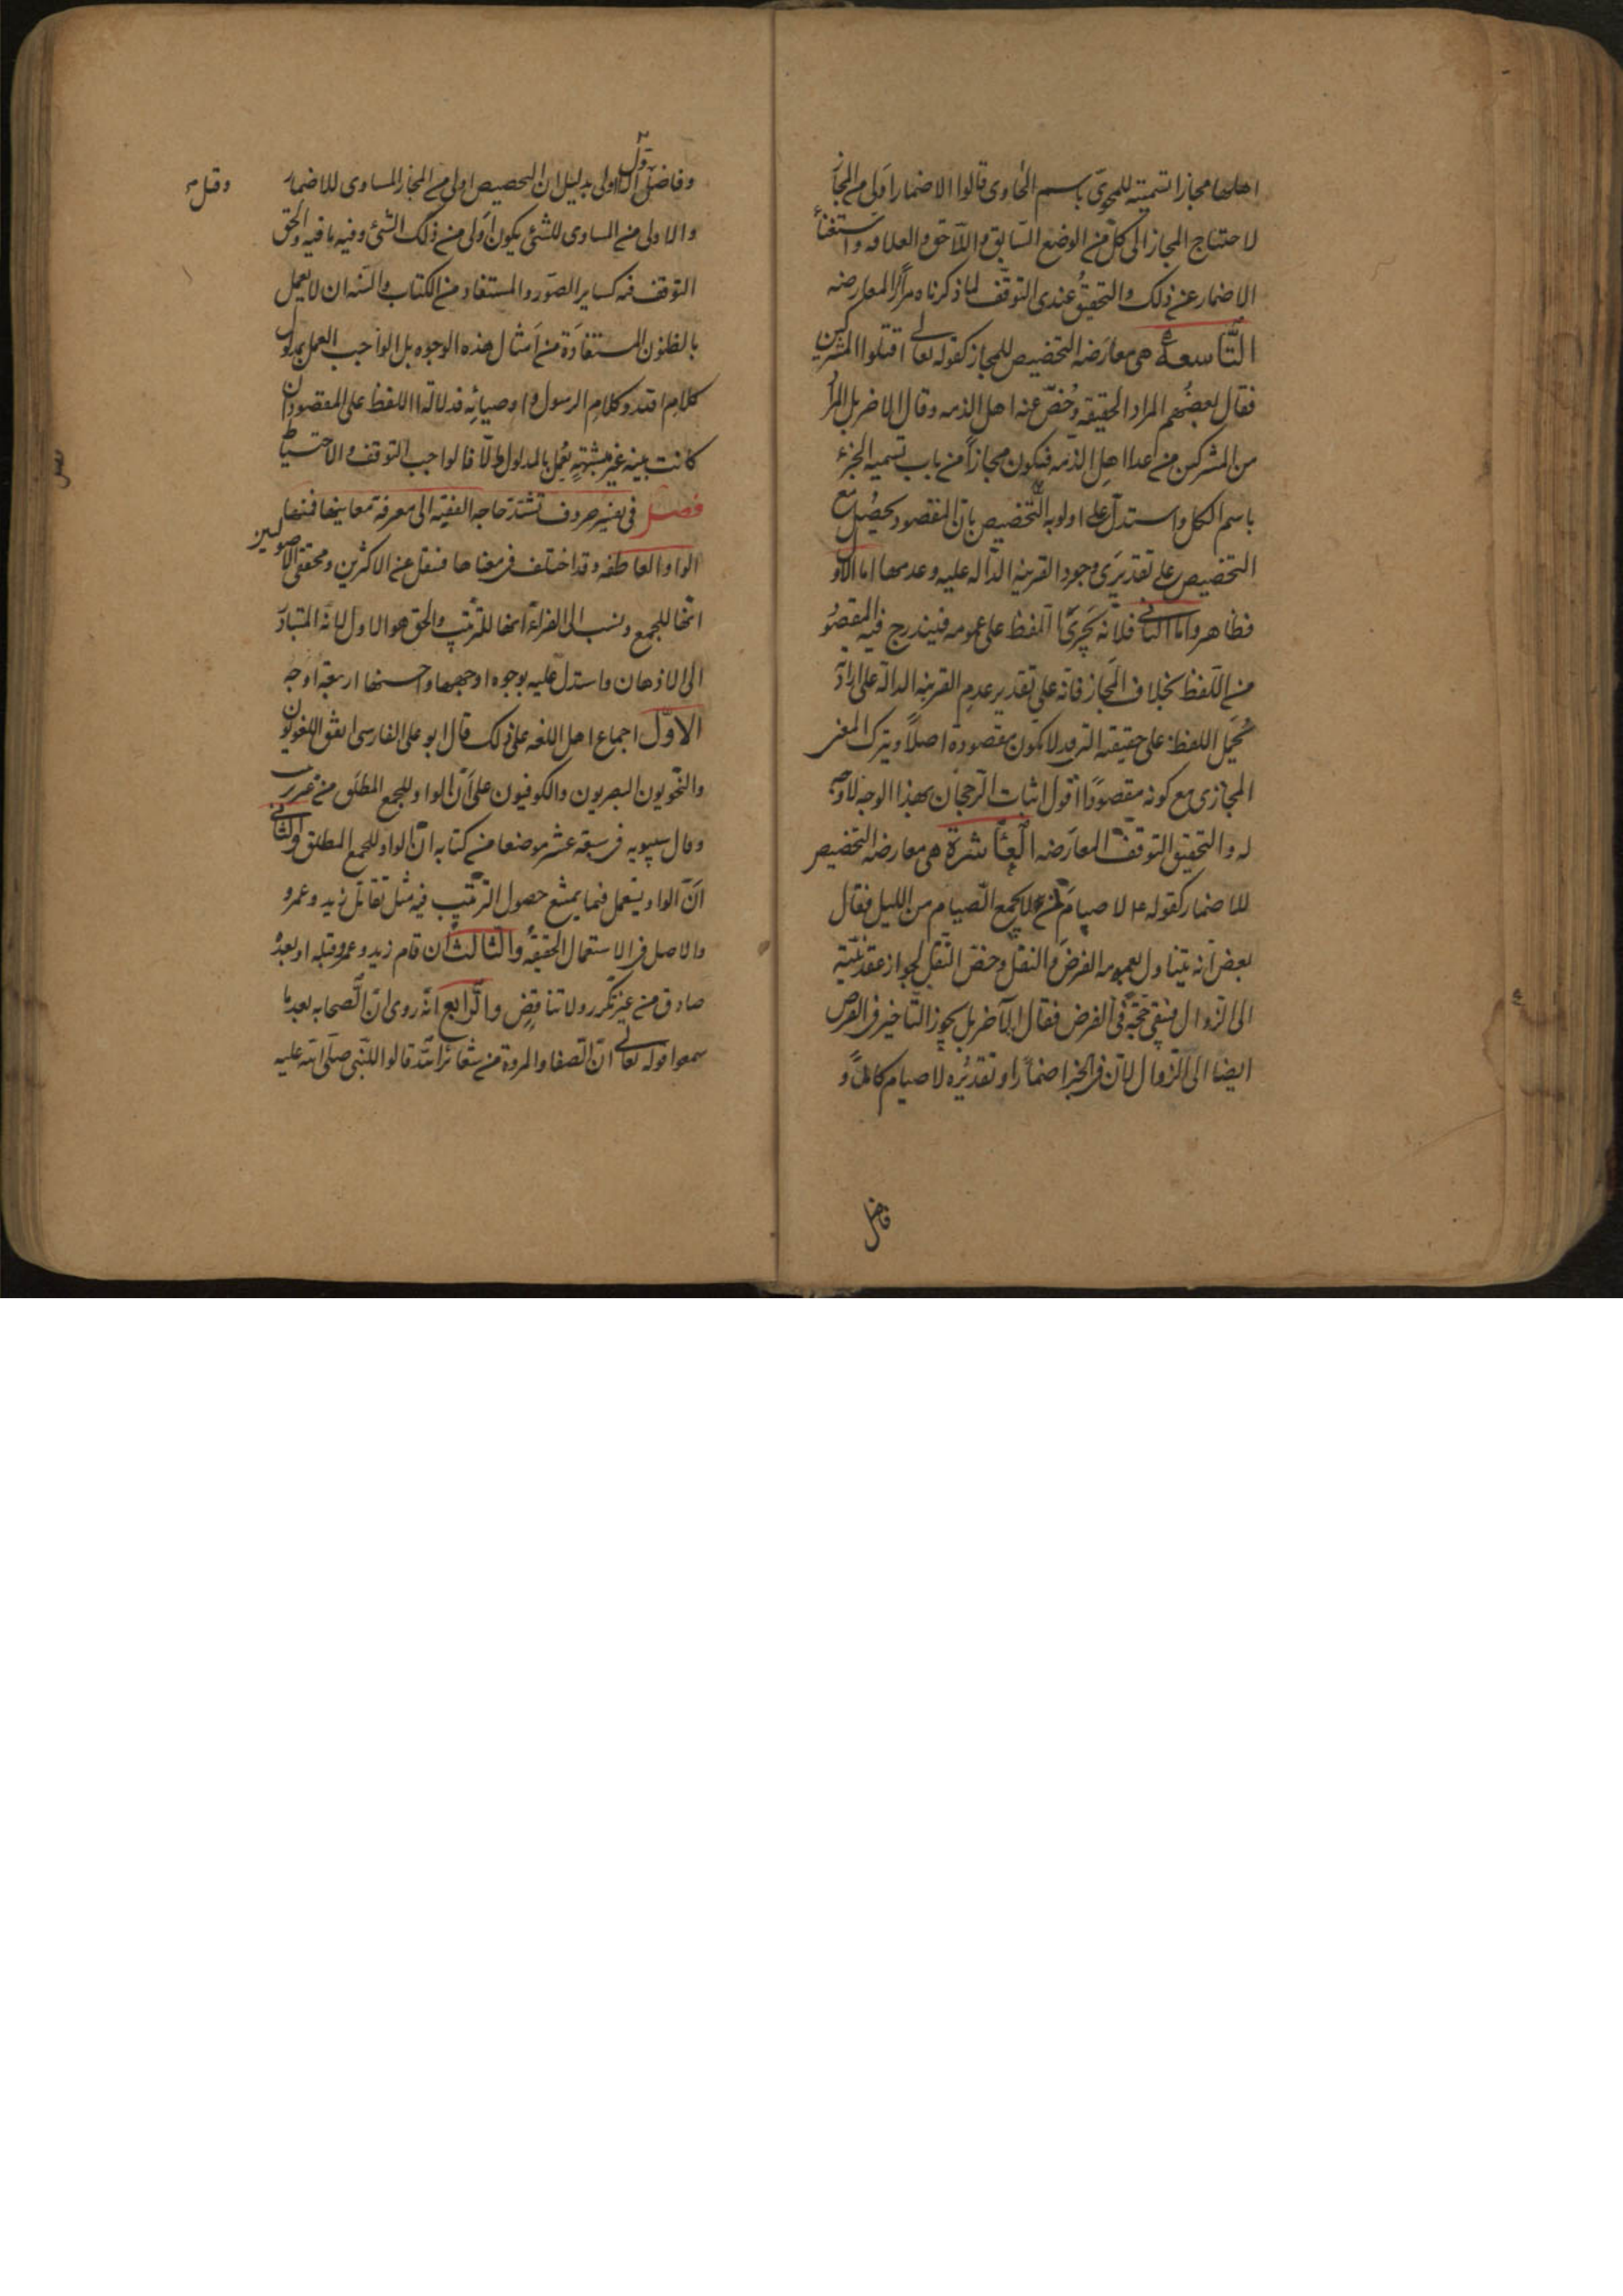 اهلها مجازا تسمية للمحوى باسم الحاوى قالوا الاضمار اولى من المجاز
لاحتياج المجاز الى كل من الوضع السابق واللاحق والعلاقه واستغناء
الاضمار عن ذلك والتحقيق عندى التوقف لما ذكرناه مرارا المعارضه
التاسعة هى معارضه التخصيص للمجاز كقوله تعالى اقتلوا المشركين
فقال بعضهم المراد الحقيقه وخص عنه اهل الذمه وقال الاخر بل المراد
من المشركين من عدا اهل الذمه فيكون مجازا من باب تسميه الجزء
باسم الكل واستدل على اولويه التخصيص بان المقصود يحصل مع
التخصيص على تقديرى وجود القرينه الداله عليه وعدمها اما الاول
فظاهر واما الثانى فلانه يجرى اللفظ على عمومه فيندرج فيه المقصود
من اللفظ بخلاف المجاز فانه على تقدير عدم القرينه الداله على ارادة
يحمل اللفظ على حقيقته التى قد لا تكون مقصودة اصلا ويترك المعنى
المجازى مع كونه مقصودا اقول اثبات الرجحان بهذا الوجه لا وجه
له والتحقيق التوقف المعارضه العاشرة هى معارضه التخصيص
للاضمار كقوله ع لا صيام لمن لا يجمع الصيام من الليل فقال
بعض انه يتناول بعمومه الفرض والنفل وخص النفل لجواز عقد نيته
الى الزوال فبقى حجة فى الفرض فقال الآخر بل يجوز التاخير فى الفرض
ايضا الى الزوال لان فى الخبر اضمارا وتقديره لا صيام كاملا و
فاضل
وفاضل الاول اولى بدليل ان التخصيص اولى من المجاز المساوى للاضمار
والاولى من المساوى للشئ يكون اولى من ذلك الشئ وفيه ما فيه والحق
التوقف فيه كساير الصور والمستفاد من الكتاب والسنه ان لا يعمل
بالظنون المستفادة من امثال هذه الوجوه بل الواجب العمل بمدلول
كلام الله وكلام الرسول واوصيائه فدلالة اللفظ على المقصود ان
كانت بينه غير مشتبهة يعمل بالمدلول والا فالواجب التوقف والاحتياط
فصل فى تفسير حروف تشتد حاجه الفقيه الى معرفة معانيها فمنها
الواو العاطفه وقد اختلف فى معناها فنقل عن الاكثرين ومحققى الاصوليين
انها للجمع ونسب الى الفراء انها للترتيب والحق هو الاول لانه المتبادر
الى الاذهان واستدل عليه بوجوه اوجهها واحسنها اربعة اوجه
الاول اجماع اهل اللغه على ذلك قال ابو على الفارسى اتفق اللغويون
والنحويون البصريون والكوفيون على ان الواو للجمع المطلق من غير ترتيب
وقال سيبويه فى سبعة عشر موضعا من كتابه ان الواو للجمع المطلق والثانى
ان الواو يستعمل فيما يمتنع حصول الترتيب فيه مثل تقاتل زيد وعمرو
والاصل فى الاستعمال الحقيقه والثالث ان قام زيد وعمرو قبله او بعده
صادق من غير تكرر ولا تناقض والرابع انه روى ان الصحابه بعد ما
سمعوا قوله تعالى ان الصفا والمروة من شعائر الله قالوا للنبى صلى الله عليه